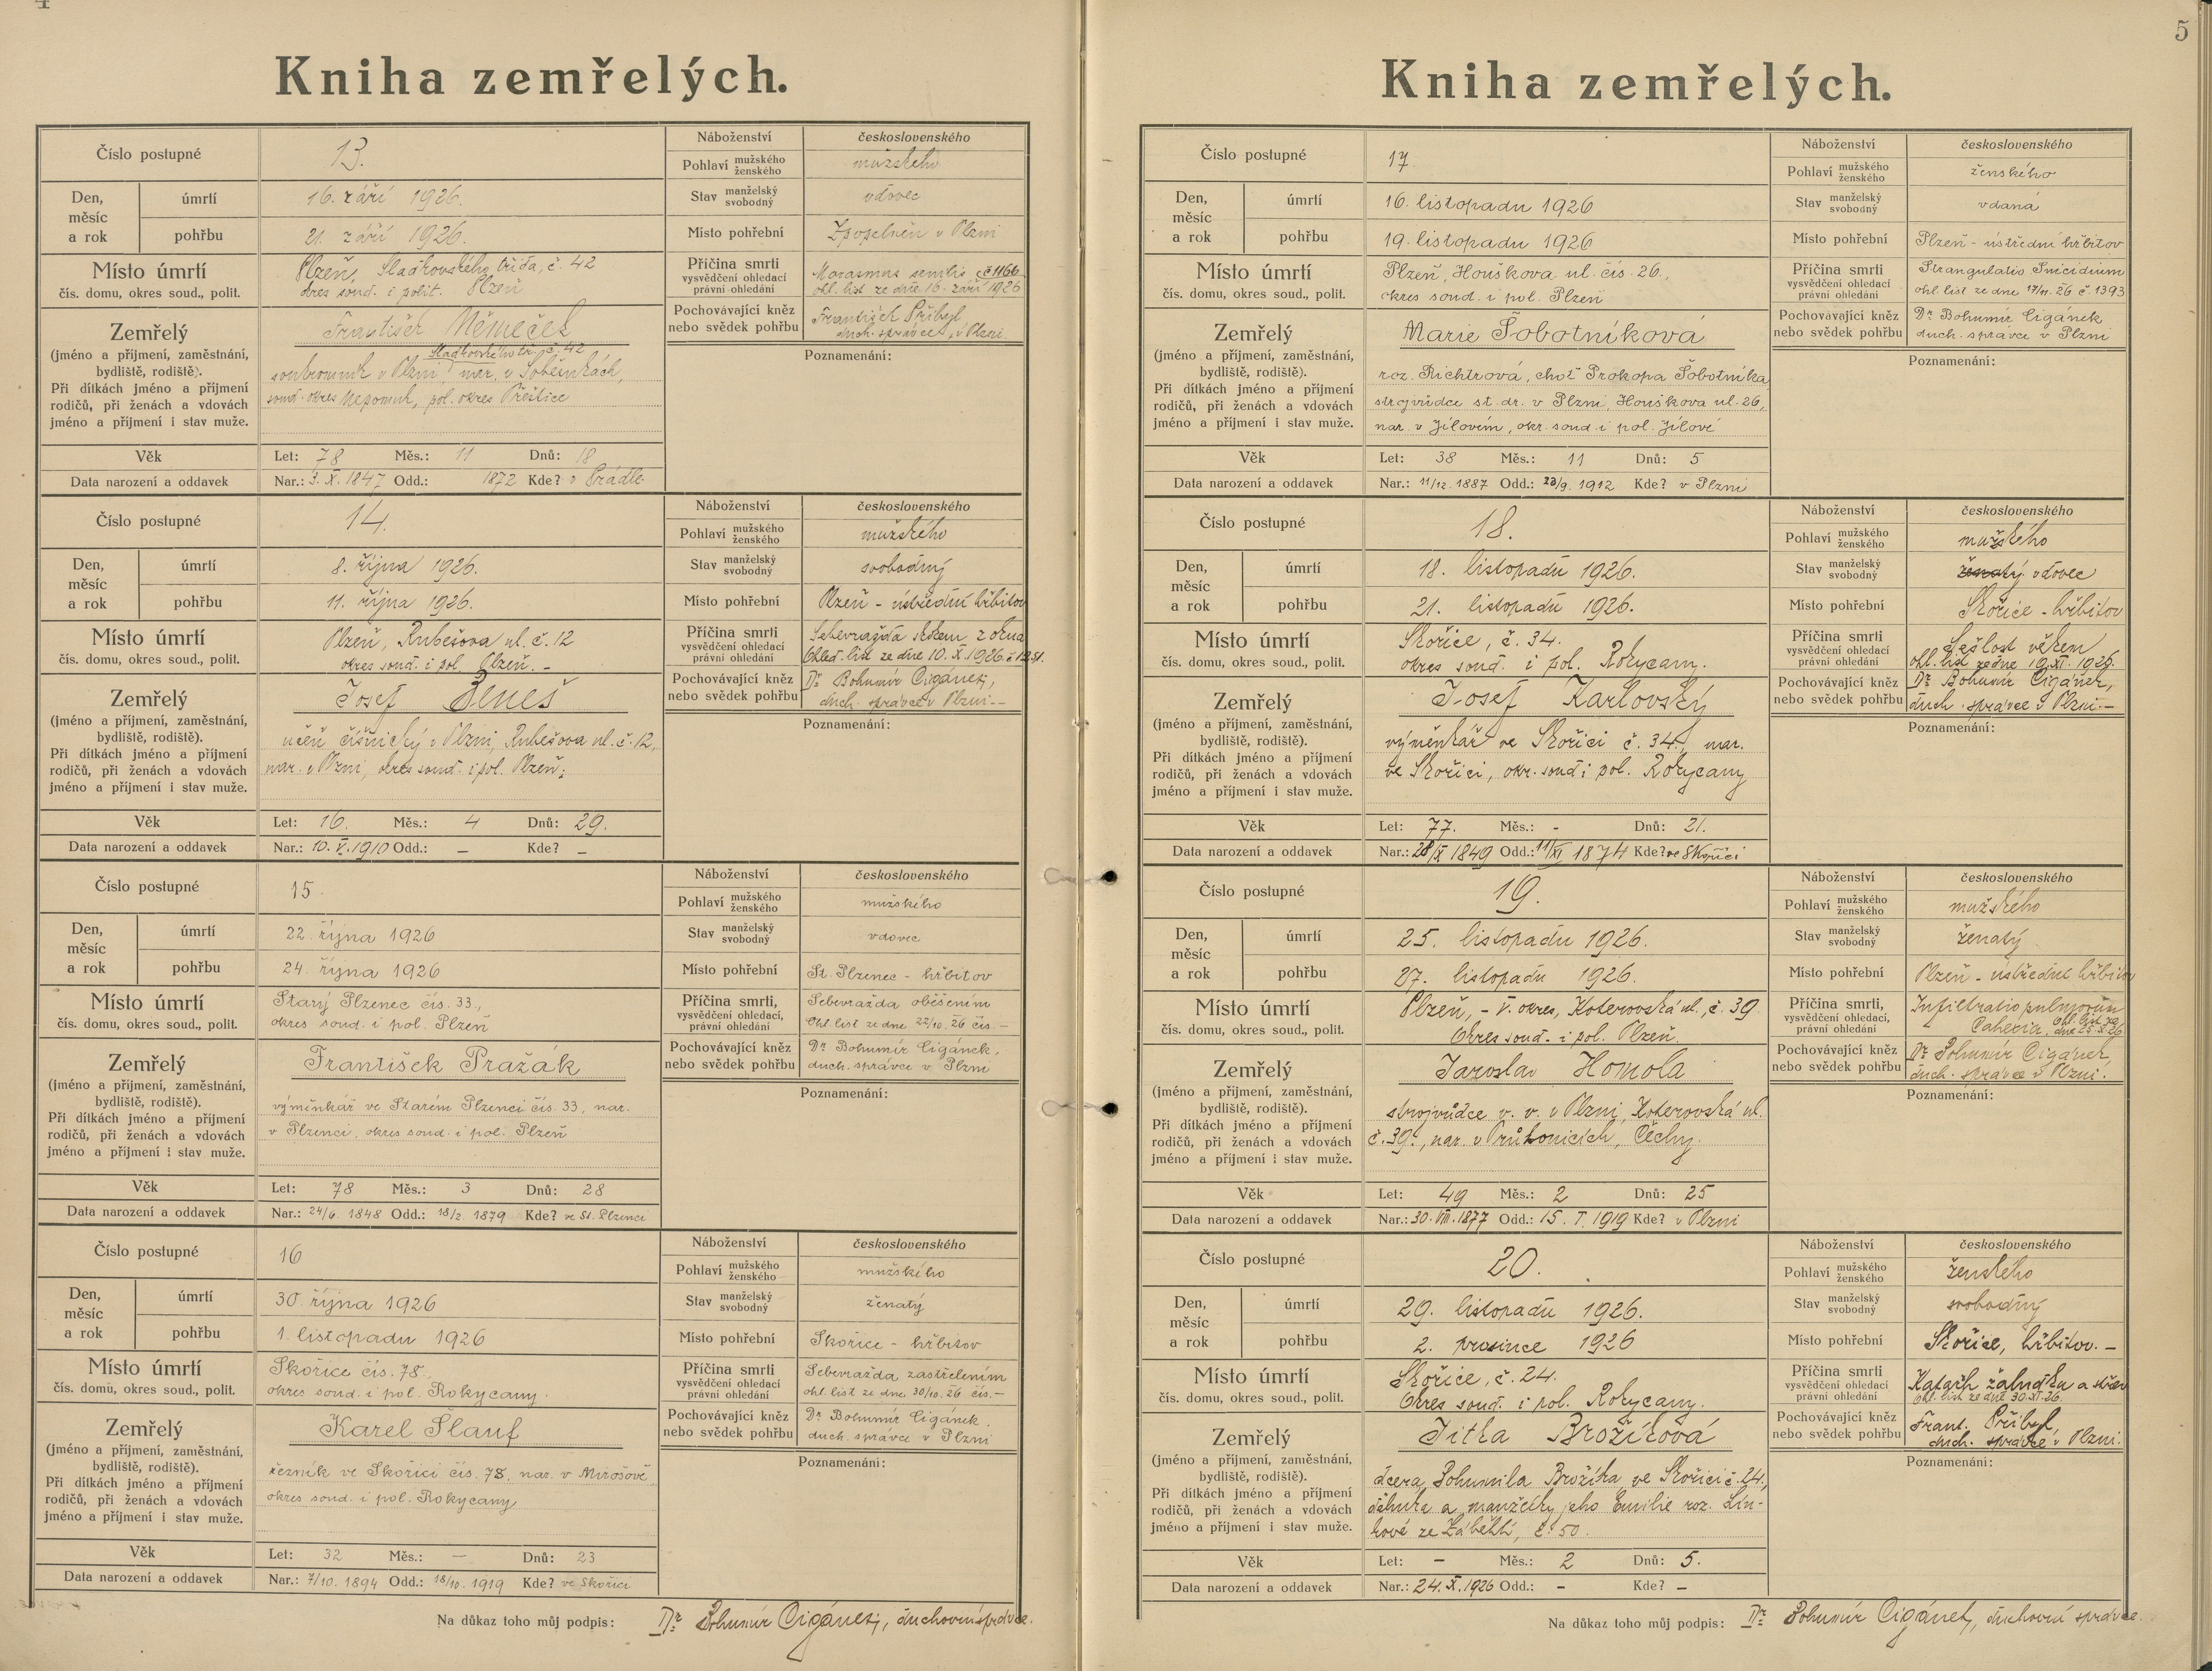 4
Kniha zemřelých.
Číslo postupné 13.
Den, měsíc a rok úmrtí 16. září 1926.
pohřbu 21. září 1926.
Místo úmrtí Plzeň, Sladkovského třída, č. 42
čís. domu, okres soud., polit. okres soud. i polit. Plzeň
Zemřelý František Němeček
(jméno a příjmení, zaměstnání, bydliště, rodiště). Při dítkách jméno a příjmení rodičů, při ženách a vdovách jméno a příjmení i stav muže.
Sladkovského tř. č. 42
soukromník v Plzni, nar. v Soběsukách,
soud. okres Nepomuk, pol. okres Přeštice
Věk Let: 78 Měs.: 11 Dnů: 18
Data narození a oddavek Nar.: 3. X. 1847 Odd.: 1872 Kde? v Prádle
Náboženství československého
Pohlaví mužského ženského mužského
Stav manželský svobodný vdovec
Místo pohřební Zpopelněn v Plzni
Příčina smrti Marasmus senilis č 1166
vysvědčení ohledací právní ohledání ohl. list ze dne 16. září 1926
Pochovávající kněz František Přibyl
nebo svědek pohřbu duch. správce v Plzni
Poznamenání:
Číslo postupné 14.
Den, měsíc a rok úmrtí 8. října 1926.
pohřbu 11. října 1926.
Místo úmrtí Plzeň, Rubešova ul. č. 12
čís. domu, okres soud., polit. okres soud. i pol. Plzeň. -
Zemřelý Josef Beneš
(jméno a příjmení, zaměstnání, bydliště, rodiště). Při dítkách jméno a příjmení rodičů, při ženách a vdovách jméno a příjmení i stav muže.
učeň číšnický v Plzni, Rubešova ul. č. 12,
nar. v Plzni, okres soud. i pol. Plzeň;
Věk Let: 16. Měs.: 4 Dnů: 29.
Data narození a oddavek Nar.: 10. V. 1910 Odd.: – Kde? –
Náboženství československého
Pohlaví mužského ženského mužského
Stav manželský svobodný svobodný
Místo pohřební Plzeň - ústřední hřbitov
Příčina smrti Sebevražda skokem z okna
vysvědčení ohledací právní ohledání Ohled. list ze dne 10. X. 1926.
Pochovávající kněz Dr. Bohumír Cigánek,
nebo svědek pohřbu duch. správce v Plzni.--
Poznamenání:
Číslo postupné 15
Den, měsíc a rok úmrtí 22. října 1926
pohřbu 24. října 1926
Místo úmrtí Starý Plzenec čís. 33.,
čís. domu, okres soud., polit. okres soud. i pol. Plzeň
Zemřelý František Pražák
(jméno a příjmení, zaměstnání, bydliště, rodiště). Při dítkách jméno a příjmení rodičů, při ženách a vdovách jméno a příjmení i stav muže.
výminkář ve Starém Plzenci čís. 33, nar.
v Plzenci, okres soud. i pol. Plzeň
Věk Let: 78 Měs.: 3 Dnů: 28
Data narození a oddavek Nar.: 24/6. 1848 Odd.: 18/2. 1879 Kde? ve St. Plzenci
Náboženství československého
Pohlaví mužského ženského mužského
Stav manželský svobodný vdovec
Místo pohřební St. Plzenec - hřbitov
Příčina smrti, Sebevražda oběšením
vysvědčení ohledací, právní ohledání Ohl. list ze dne 22/10. 26 čís. –
Pochovávající kněz Dr Bohumír Cigánek,
nebo svědek pohřbu duch. správce v Plzni
Poznamenání:
Číslo postupné 16
Den, měsíc a rok úmrtí 30. října 1926
pohřbu 1. listopadu 1926
Místo úmrtí Skořice čís. 78.,
čís. domu, okres soud., polit. okres soud. i pol. Rokycany.
Zemřelý Karel Šlauf
(jméno a příjmení, zaměstnání, bydliště, rodiště). Při dítkách jméno a příjmení rodičů, při ženách a vdovách jméno a příjmení i stav muže.
řezník ve Skořici čís. 78, nar. v Mirošově
okres soud. i pol. Rokycany
Věk Let: 32 Měs.: – Dnů: 23
Data narození a oddavek Nar.: 7/10. 1894 Odd.: 18/10. 1919 Kde? ve Skořici
Náboženství československého
Pohlaví mužského ženského mužského
Stav manželský svobodný ženatý
Místo pohřební Skořice - hřbitov
Příčina smrti Sebevražda zastřelením
vysvědčení ohledací právní ohledání ohl. list ze dne 30/10. 26 čís. –
Pochovávající kněz Dr Bohumír Cigánek.
nebo svědek pohřbu duch. správce v Plzni
Poznamenání:
Na důkaz toho můj podpis: Dr. Bohumír Cigánek, duchovní správce.
5
Kniha zemřelých.
Číslo postupné 17
Den, měsíc a rok úmrtí 16. listopadu 1926
pohřbu 19. listopadu 1926
Místo úmrtí Plzeň, Houškova ul. čís. 26.,
čís. domu, okres soud., polit. okres soud. i pol. Plzeň
Zemřelý Marie Šobotníková
(jméno a příjmení, zaměstnání, bydliště, rodiště). Při dítkách jméno a příjmení rodičů, při ženách a vdovách jméno a příjmení i stav muže.
roz. Richtrová, choť Prokopa Šobotníka
strojvůdce st. dr. v Plzni, Houškova ul. 26,
nar. v Jílovém, okr. soud. i pol. Jílové
Věk Let: 38 Měs.: 11 Dnů: 5
Data narození a oddavek Nar.: 11/12. 1887 Odd.: 23/9. 1912 Kde? v Plzni
Náboženství československého
Pohlaví mužského ženského ženského
Stav manželský svobodný vdaná
Místo pohřební Plzeň - ústřední hřbitov
Příčina smrti Strangulatio Suicidium
vysvědčení ohledací právní ohledání ohl. list ze dne 17/11. 26 č. 1393
Pochovávající kněz Dr Bohumír Cigánek
nebo svědek pohřbu duch. správce v Plzni
Poznamenání:
Číslo postupné 18.
Den, měsíc a rok úmrtí 18. listopadu 1926.
pohřbu 21. listopadu 1926.
Místo úmrtí Skořice, č. 34.
čís. domu, okres soud., polit. okres soud. i pol. Rokycany.
Zemřelý Josef Karlovský
(jméno a příjmení, zaměstnání, bydliště, rodiště). Při dítkách jméno a příjmení rodičů, při ženách a vdovách jméno a příjmení i stav muže.
výměnkář ve Skořici č. 34., nar.
ve Skořici, okr. soud i pol. Rokycany
Věk Let: 77. Měs.: - Dnů: 21.
Data narození a oddavek Nar.: 28/X 1849 Odd.: 11/XI 1874 Kde? ve Skořici
Náboženství československého
Pohlaví mužského ženského mužského
Stav manželský svobodný ženatý vdovec
Místo pohřební Skořice - hřbitov
Příčina smrti Sešlost věkem
vysvědčení ohledací právní ohledání ohl. list ze dne 19. XI. 1926.
Pochovávající kněz Dr Bohumír Cigánek,
nebo svědek pohřbu duch. správce v Plzni.–
Poznamenání:
Číslo postupné 19.
Den, měsíc a rok úmrtí 25. listopadu 1926.
pohřbu 27. listopadu 1926.
Místo úmrtí Plzeň, - V. okres, Koterovská ul., č. 39
čís. domu, okres soud., polit. Okres soud. i pol. Plzeň.
Zemřelý Jaroslav Homola
(jméno a příjmení, zaměstnání, bydliště, rodiště). Při dítkách jméno a příjmení rodičů, při ženách a vdovách jméno a příjmení i stav muže.
strojvůdce v. v. v Plzni, Koterovská ul.
č. 39., nar. v Průhonicích, Čechy.
Věk Let: 49 Měs.: 2 Dnů: 25
Data narození a oddavek Nar.: 30. VIII. 1877 Odd.: 15. I. 1919 Kde? v Plzni
Náboženství československého
Pohlaví mužského ženského mužského
Stav manželský svobodný ženatý
Místo pohřební Plzeň - ústřední hřbitov
Příčina smrti, Infiltratio pulmonum
vysvědčení ohledací, právní ohledání Cahexia. ohl. list ze dne
Pochovávající kněz Dr Bohumír Cigánek,
nebo svědek pohřbu duch. správce v Plzni.
Poznamenání:
Číslo postupné 20.
Den, měsíc a rok úmrtí 29. listopadu 1926.
pohřbu 2. prosince 1926
Místo úmrtí Skořice, č. 24.
čís. domu, okres soud., polit. Okres soud. i pol. Rokycany.
Zemřelý Jitka Brožíková
(jméno a příjmení, zaměstnání, bydliště, rodiště). Při dítkách jméno a příjmení rodičů, při ženách a vdovách jméno a příjmení i stav muže.
dcera Bohumila Brožíka, ve Skořici č. 24,
dělníka a manželky jeho Emilie roz. Lín-
kové ze Záběhlí, č. 50.
Věk Let: – Měs.: 2 Dnů: 5.
Data narození a oddavek Nar.: 24. X. 1926 Odd.: – Kde? –
Náboženství československého
Pohlaví mužského ženského ženského
Stav manželský svobodný svobodný
Místo pohřební Skořice, hřbitov. –
Příčina smrti Katarh žaludku a střev
vysvědčení ohledací právní ohledání Ohl. list ze dne 30. XI. 26.
Pochovávající kněz Frant. Přibyl,
nebo svědek pohřbu duch. správce v Plzni.
Poznamenání:
Na důkaz toho můj podpis: Dr. Bohumír Cigánek, duchovní správce.